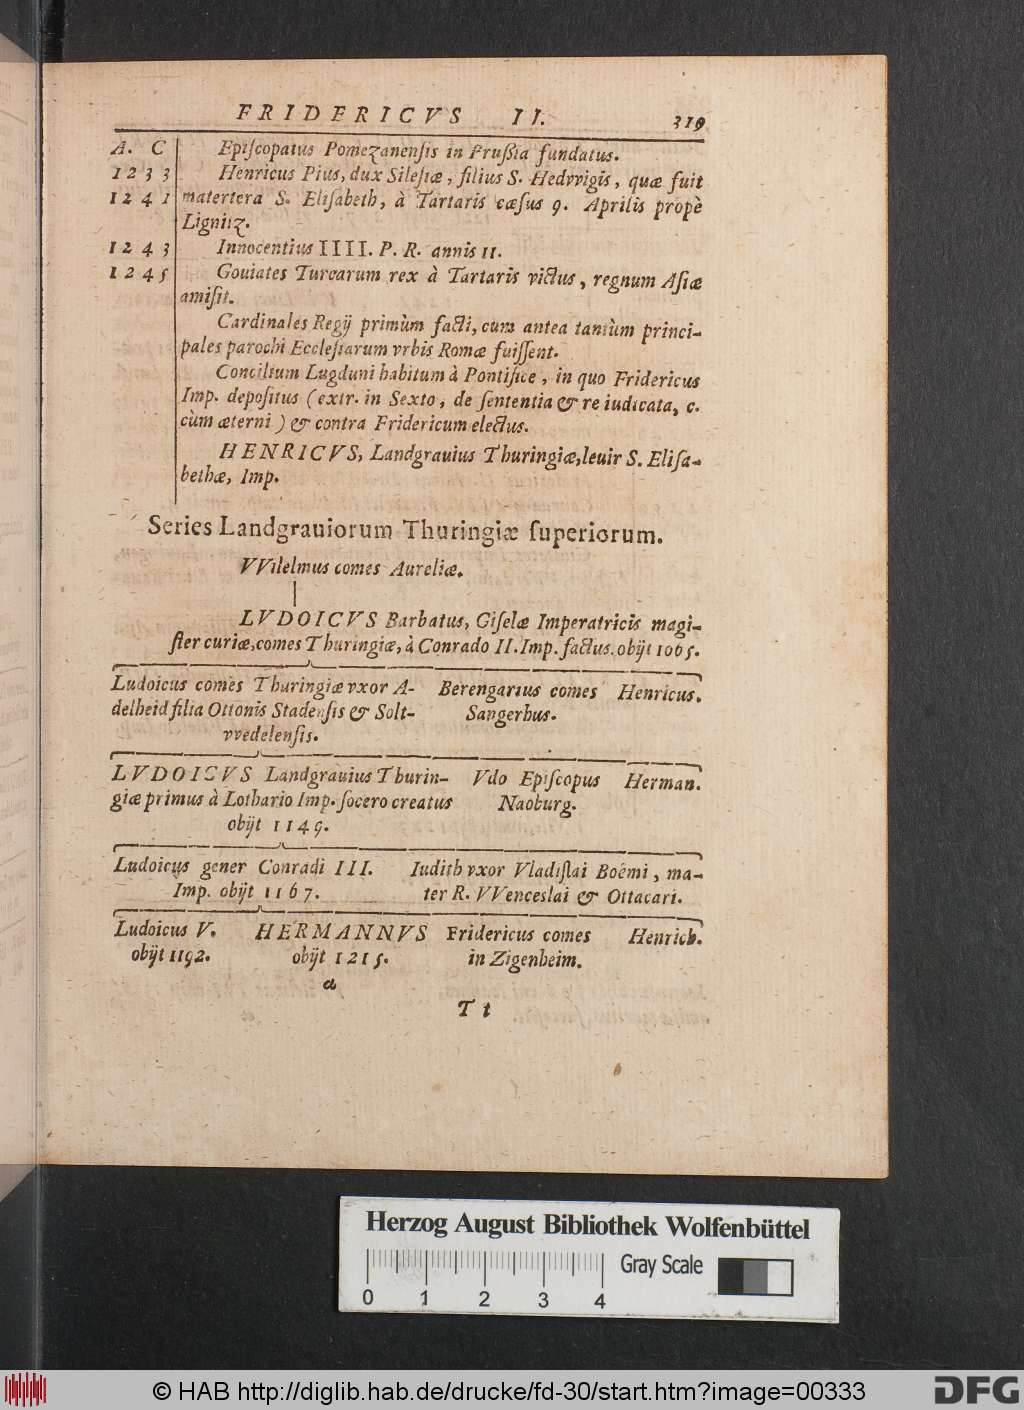 FRIDERICVS II. 319
A. C Epiſcopatus Pomezanenſis in Pruſſia fundatus.
1233 Henricus Pius, dux Sileſiæ, filius S. Hedvvigis, quæ fuit
1241 matertera S. Eliſabeth, à Tartaris cæſus 9. Aprilis propè
Lignitz.
1243 Innocentius IIII. P. R. annis 11.
1245 Gouiates Turcarum rex à Tartaris victus, regnum Aſiæ
amiſit.
Cardinales Regij primùm facti, cum antea tantùm princi-
pales parochi Eccleſiarum vrbis Romæ fuiſſent.
Concilium Lugduni habitum à Pontifice, in quo Fridericus
Imp. depoſitus (extr. in Sexto, de ſententia & re iudicata, c.
cùm æterni) & contra Fridericum electus.
HENRICVS, Landgrauius Thuringiæ, leuir S. Eliſa-
bethæ, Imp.
Series Landgrauiorum Thuringiæ ſuperiorum.
VVilelmus comes Aureliæ.
LVDOICVS Barbatus, Giſelæ Imperatricis magi-
ſter curiæ, comes Thuringiæ, à Conrado II. Imp. factus. obijt 1065.
Ludoicus comes Thuringiæ vxor A- Berengarius comes Henricus.
delheid filia Ottonis Stadenſis & Solt- Sangerhus.
vvedelenſis.
LVDOICVS Landgrauius Thurin- Vdo Epiſcopus Herman.
giæ primus à Lothario Imp. ſocero creatus Naoburg.
obijt 1149.
Ludoicus gener Conradi III. Iudith vxor Vladiſlai Boëmi, ma-
Imp. obijt 1167. ter R. VVenceslai & Ottacari.
Ludoicus V. HERMANNVS Fridericus comes Henrich.
obijt 1192. obijt 1215. in Zigenheim.
a
T t
Herzog August Bibliothek Wolfenbüttel
Gray Scale
0 1 2 3 4
© HAB http://diglib.hab.de/drucke/fd-30/start.htm?image=00333
DFG